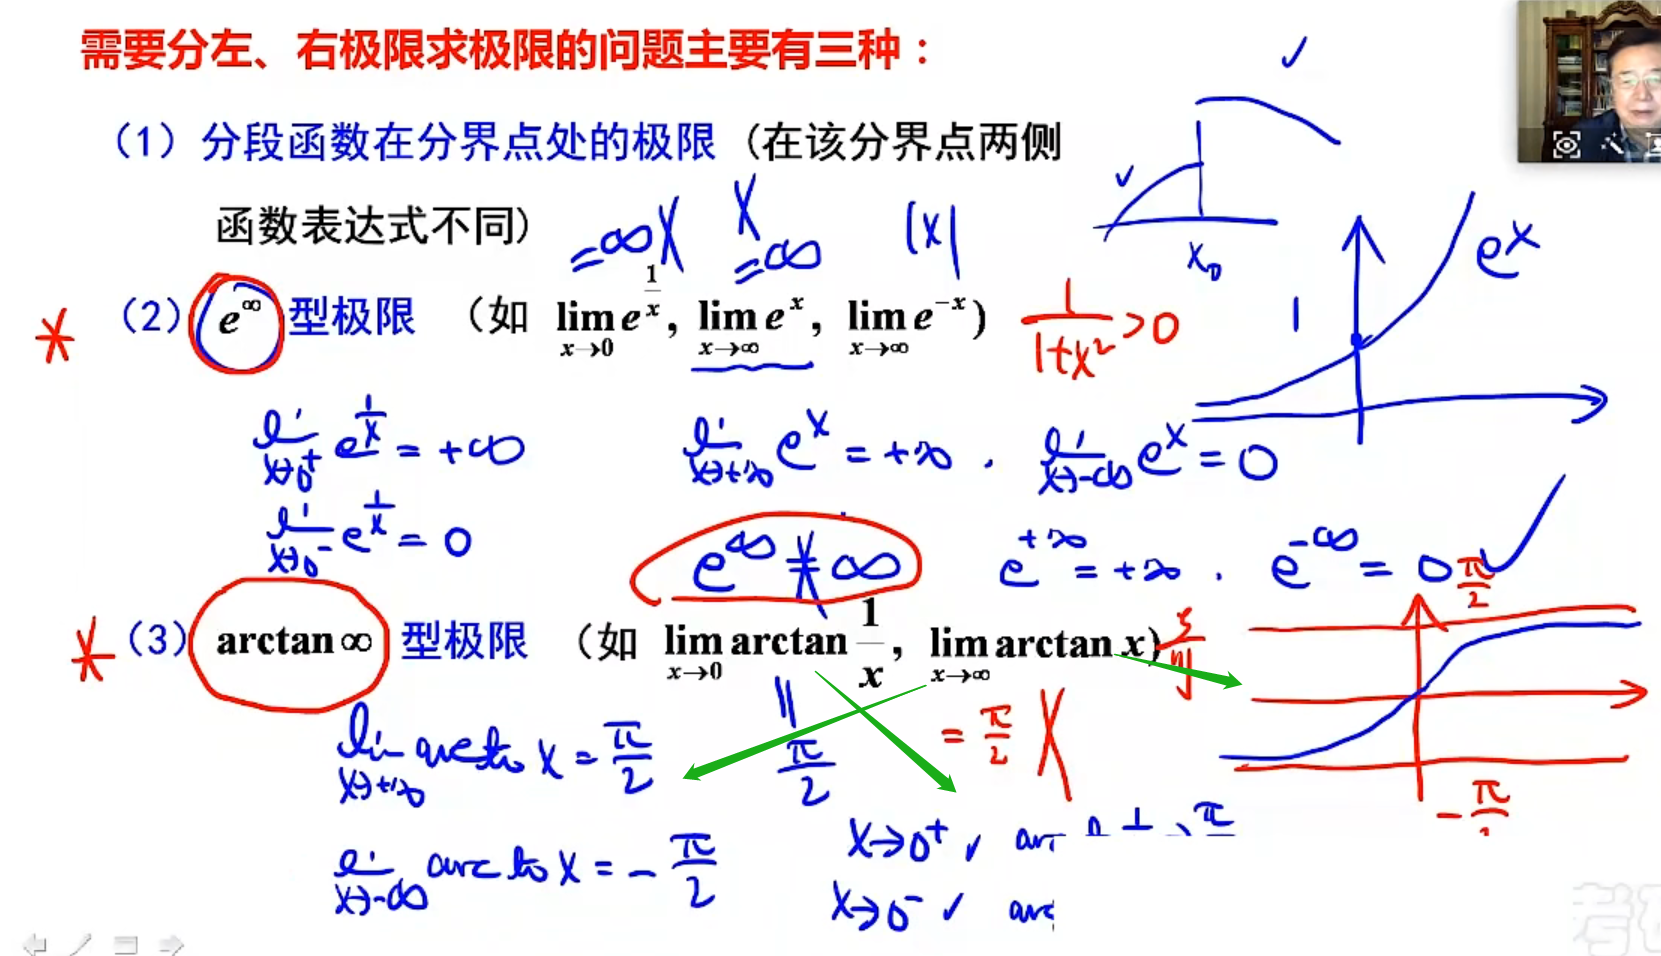 需要分左、右极限求极限的问题主要有三种：
(1) 分段函数在分界点处的极限 (在该分界点两侧
函数表达式不同)
=∞ X
X =∞
|x|
x₀
eˣ
1
* (2) e^∞ 型极限 (如 lim_{x→0} e^{1/x}, lim_{x→∞} eˣ, lim_{x→∞} e^{-x})
1/(1+x²) > 0
lim_{x→0⁺} e^{1/x} = +∞
lim_{x→+∞} eˣ = +∞ . lim_{x→-∞} eˣ = 0
lim_{x→0⁻} e^{1/x} = 0
e^∞ ≠ ∞
e^{+∞} = +∞ . e^{-∞} = 0
* (3) arctan∞ 型极限 (如 lim_{x→0} arctan 1/x, lim_{x→∞} arctan x)
π/2
= π/2 X
lim_{x→+∞} arctan x = π/2
lim_{x→-∞} arctan x = -π/2
x→0⁺ ✓
x→0⁻ ✓ arc
π/2
-π/2
考